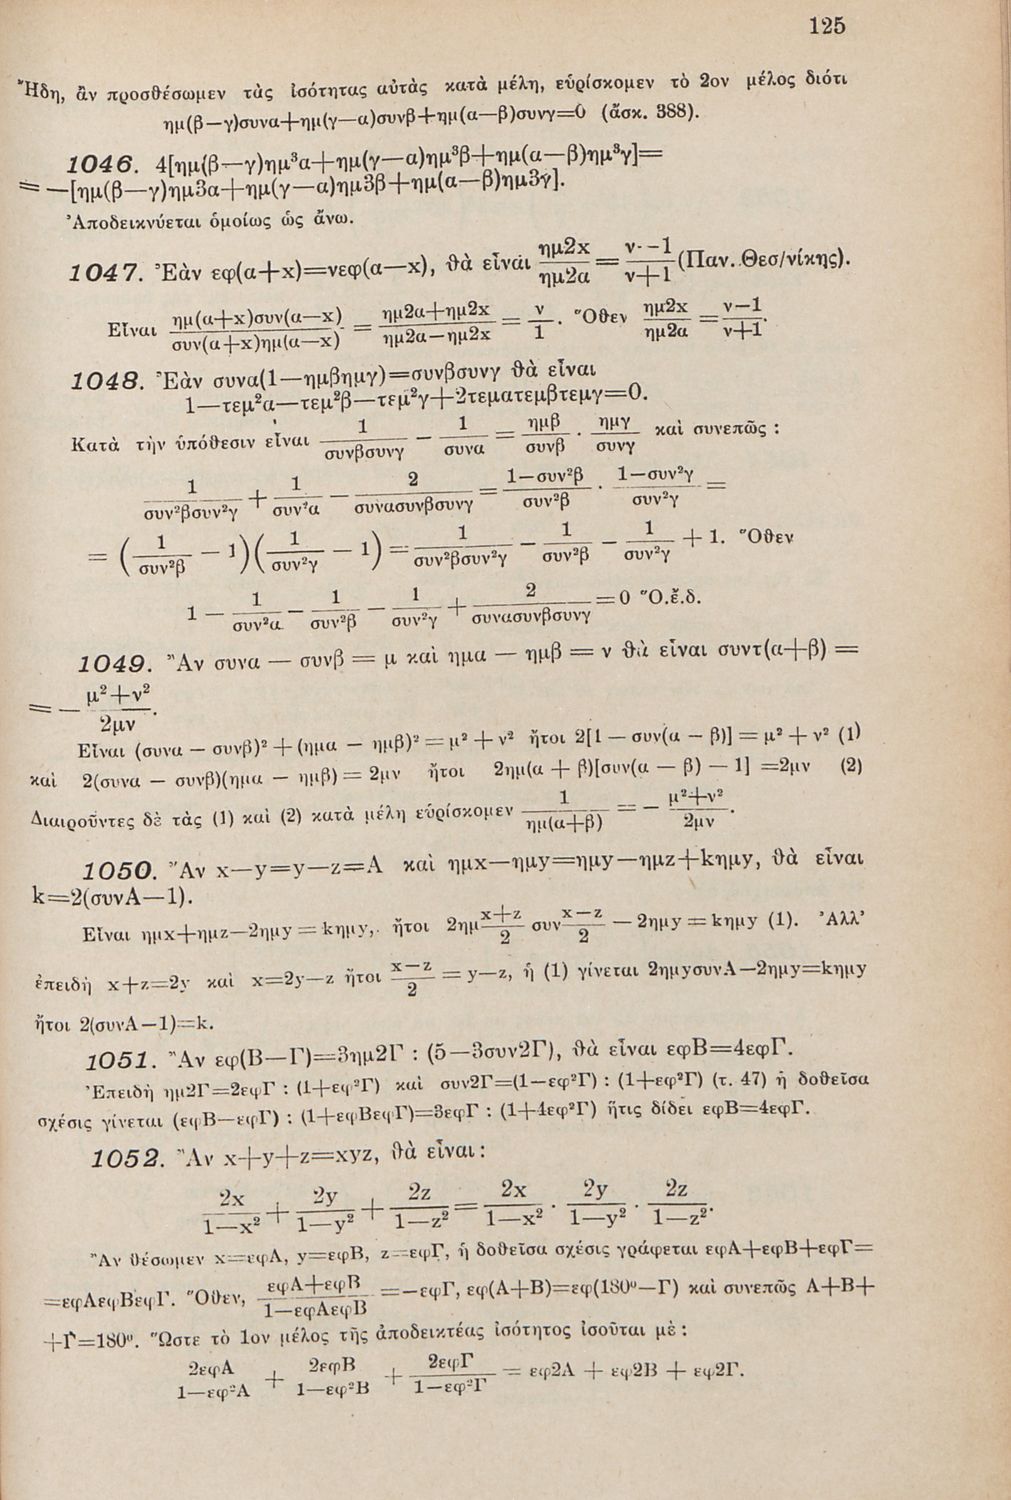 125
Ἤδη, ἂν προσθέσωμεν τὰς ἰσότητας αὐτὰς κατὰ μέλη, εὑρίσκομεν τὸ 2ον μέλος διότι
ημ(β—γ)συνα+ημ(γ—α)συνβ+ημ(α—β)συνγ=0 (ἄσκ. 388).
1046. 4[ημ(β—γ)ημ³α+ημ(γ—α)ημ³β+ημ(α—β)ημ³γ]=
= —[ημ(β—γ)ημ3α+ημ(γ—α)ημ3β+ημ(α—β)ημ3γ].
Ἀποδεικνύεται ὁμοίως ὡς ἄνω.
1047. Ἐὰν εφ(α+x)=νεφ(α—x), θὰ εἶναι ημ2x/ημ2α = ν—1/ν+1 (Παν. Θεσ/νίκης).
Εἶναι ημ(α+x)συν(α—x)/συν(α+x)ημ(α—x) = ημ2α+ημ2x/ημ2α—ημ2x = ν/1. Ὅθεν ημ2x/ημ2α = ν—1/ν+1.
1048. Ἐὰν συνα(1—ημβημγ)=συνβσυνγ θὰ εἶναι
1—τεμ²α—τεμ²β—τεμ²γ+2τεματεμβτεμγ=0.
Κατὰ τὴν ὑπόθεσιν εἶναι 1/συνβσυνγ — 1/συνα = ημβ/συνβ · ημγ/συνγ καὶ συνεπῶς :
1/συν²βσυν²γ + 1/συν²α — 2/συνασυνβσυνγ = 1—συν²β/συν²β · 1—συν²γ/συν²γ =
= (1/συν²β — 1)(1/συν²γ — 1) = 1/συν²βσυν²γ — 1/συν²β — 1/συν²γ + 1. Ὅθεν
1 — 1/συν²α — 1/συν²β — 1/συν²γ + 2/συνασυνβσυνγ = 0 Ὅ.ἔ.δ.
1049. Ἂν συνα — συνβ = μ καὶ ημα — ημβ = ν θὰ εἶναι συντ(α+β) =
= — μ²+ν²/2μν.
Εἶναι (συνα — συνβ)² + (ημα — ημβ)² = μ² + ν² ἤτοι 2[1 — συν(α — β)] = μ² + ν² (1)
καὶ 2(συνα — συνβ)(ημα — ημβ) = 2μν ἤτοι 2ημ(α + β)[συν(α — β) — 1] =2μν (2)
Διαιροῦντες δὲ τὰς (1) καὶ (2) κατὰ μέλη εὑρίσκομεν 1/ημ(α+β) = — μ²+ν²/2μν.
1050. Ἂν x—y=y—z=A καὶ ημx—ημy=ημy—ημz+kημy, θὰ εἶναι
k=2(συνA—1).
Εἶναι ημx+ημz—2ημy = kημy, ἤτοι 2ημ x+z/2 συν x—z/2 — 2ημy = kημy (1). Ἀλλ’
ἐπειδὴ x+z=2y καὶ x=2y—z ἤτοι x—z/2 = y—z, ἡ (1) γίνεται 2ημyσυνA—2ημy=kημy
ἤτοι 2(συνA—1)=k.
1051. Ἂν εφ(Β—Γ)=3ημ2Γ : (5—3συν2Γ), θὰ εἶναι εφΒ=4εφΓ.
Ἐπειδὴ ημ2Γ=2εφΓ : (1+εφ²Γ) καὶ συν2Γ=(1—εφ²Γ) : (1+εφ²Γ) (τ. 47) ἡ δοθεῖσα
σχέσις γίνεται (εφΒ—εφΓ) : (1+εφΒεφΓ)=3εφΓ : (1+4εφ²Γ) ἥτις δίδει εφΒ=4εφΓ.
1052. Ἂν x+y+z=xyz, θὰ εἶναι :
2x/1—x² + 2y/1—y² + 2z/1—z² = 2x/1—x² · 2y/1—y² · 2z/1—z².
Ἂν θέσωμεν x=εφΑ, y=εφΒ, z=εφΓ, ἡ δοθεῖσα σχέσις γράφεται εφΑ+εφΒ+εφΓ=
=εφΑεφΒεφΓ. Ὅθεν, εφΑ+εφΒ/1—εφΑεφΒ =—εφΓ, εφ(Α+Β)=εφ(180°—Γ) καὶ συνεπῶς Α+Β+
+Γ=180°. Ὥστε τὸ 1ον μέλος τῆς ἀποδεικτέας ἰσότητος ἰσοῦται μὲ :
2εφΑ/1—εφ²Α + 2εφΒ/1—εφ²Β + 2εφΓ/1—εφ²Γ = εφ2Α + εφ2Β + εφ2Γ.